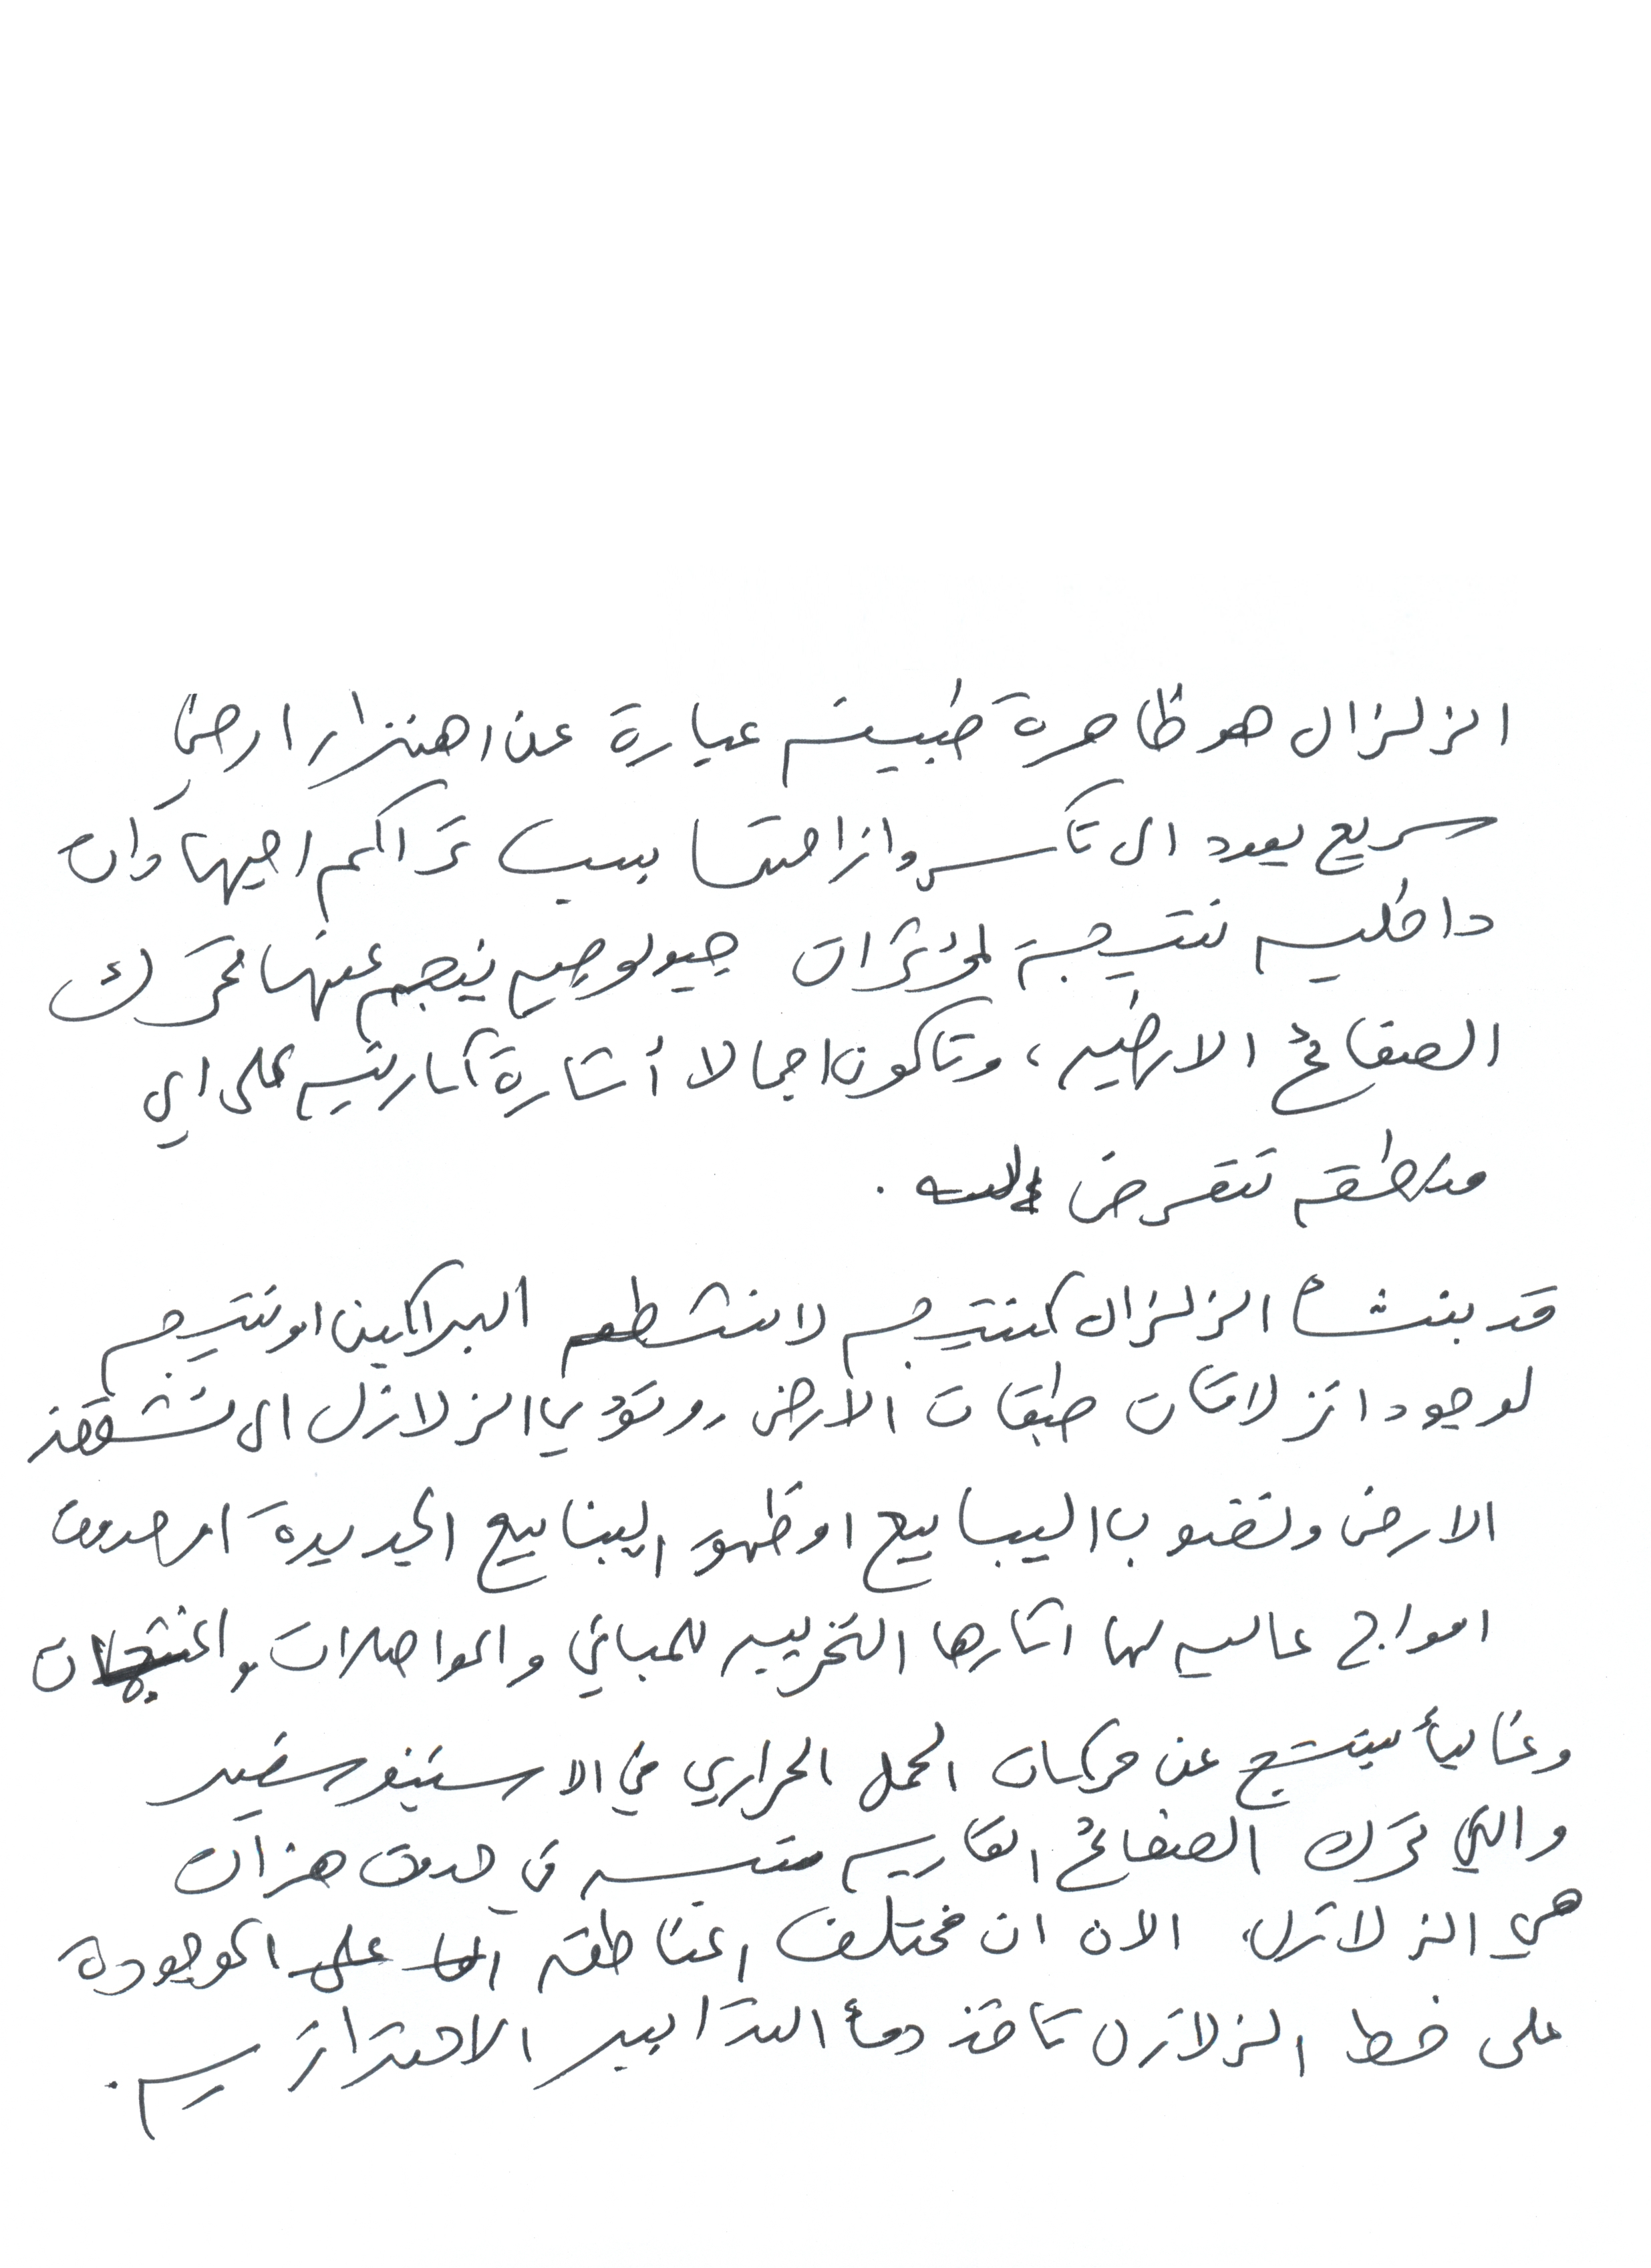 الزلزال هو ظاهرة طبيعية عبارة عن اهتزاز ارضي
سريع يعود الى تكسر وازاحتها بسبب تراكم اجهادات
داخليه نتيجة لمؤثرات جيولوجيه ينجم عنها تحرك
الصفائح الارضيه، وتكون اجمالا أشارة آثارته على اي
منطقه تتعرض
قد ينشأ الزلزال كنتيجه لانشطه البراكين او نتيجه
لوجود انزلاقات طبقات الارض، وتؤدي الزلازل الى تشقق
الارض ونضوب الينابيع او ظهور الينابيع الجديدة او حدوث
امواج عاليه لها اثارها التخريبيه للمباني والمواصلات والمنتجات
وغالباً ينتج عن حركات الحمل الحراري في الاستينوسفير
والتي تحرك الصفائح القاريه متسببه في حدوث هزات
هي الزلازل، الان ان مختلف المناطقه الموجودة
على خط الزلازل تاخذ دوماً التدابير الاحترازيه.